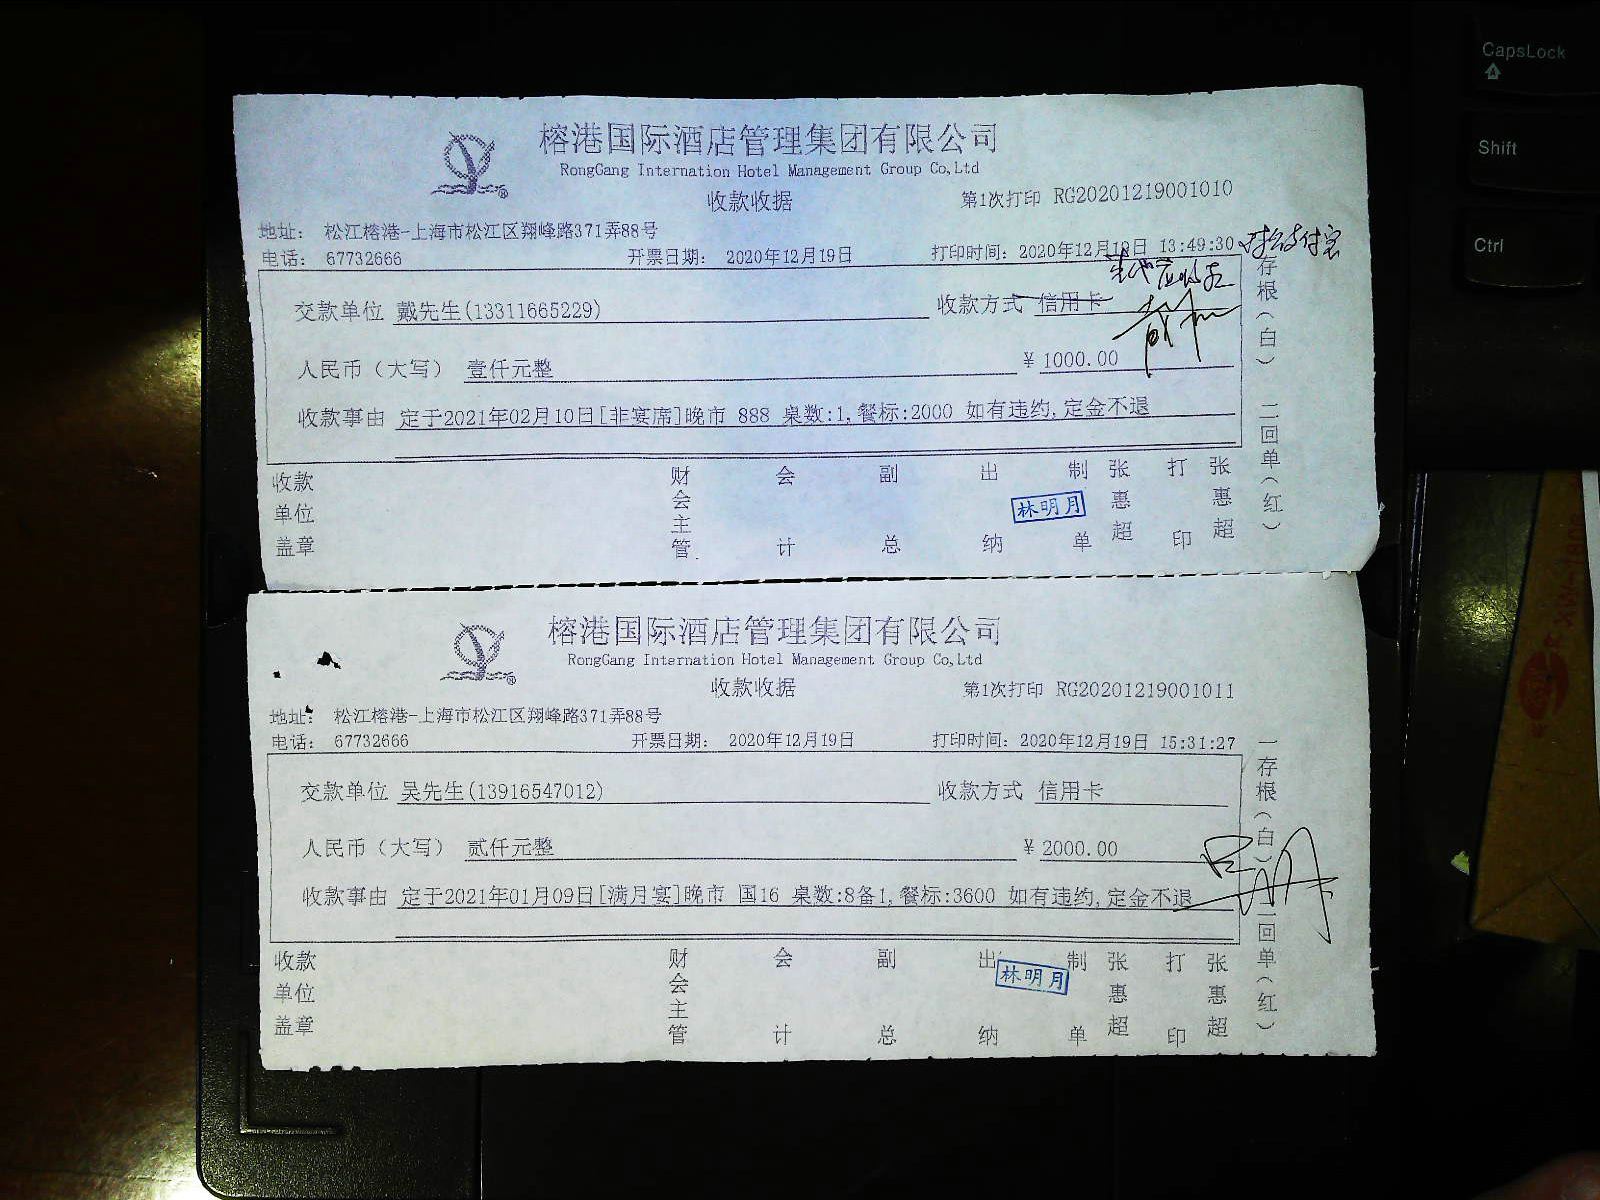 CapsLock
Shift
Ctrl
榕港国际酒店管理集团有限公司
RongGang Internation Hotel Management Group Co,Ltd
收款收据
第1次打印 RG20201219001010
地址: 松江榕港-上海市松江区翔峰路371弄88号
电话: 67732666 开票日期: 2020年12月19日 打印时间: 2020年12月19日 13:49:30
交款单位 戴先生(13311665229) 收款方式 信用卡
人民币（大写） 壹仟元整 ¥ 1000.00
收款事由 定于2021年02月10日[非宴席]晚市 888 桌数:1,餐标:2000 如有违约,定金不退
存根（白） 二回单（红）
收款单位盖章 财会主管 会计 副总 出纳 林明月 制单 张惠超 打印 张惠超
榕港国际酒店管理集团有限公司
RongGang Internation Hotel Management Group Co,Ltd
收款收据
第1次打印 RG20201219001011
地址: 松江榕港-上海市松江区翔峰路371弄88号
电话: 67732666 开票日期: 2020年12月19日 打印时间: 2020年12月19日 15:31:27
交款单位 吴先生(13916547012) 收款方式 信用卡
人民币（大写） 贰仟元整 ¥ 2000.00
收款事由 定于2021年01月09日[满月宴]晚市 国16 桌数:8备1,餐标:3600 如有违约,定金不退
一存根（白） 二回单（红）
收款单位盖章 财会主管 会计 副总 出纳 林明月 制单 张惠超 打印 张惠超